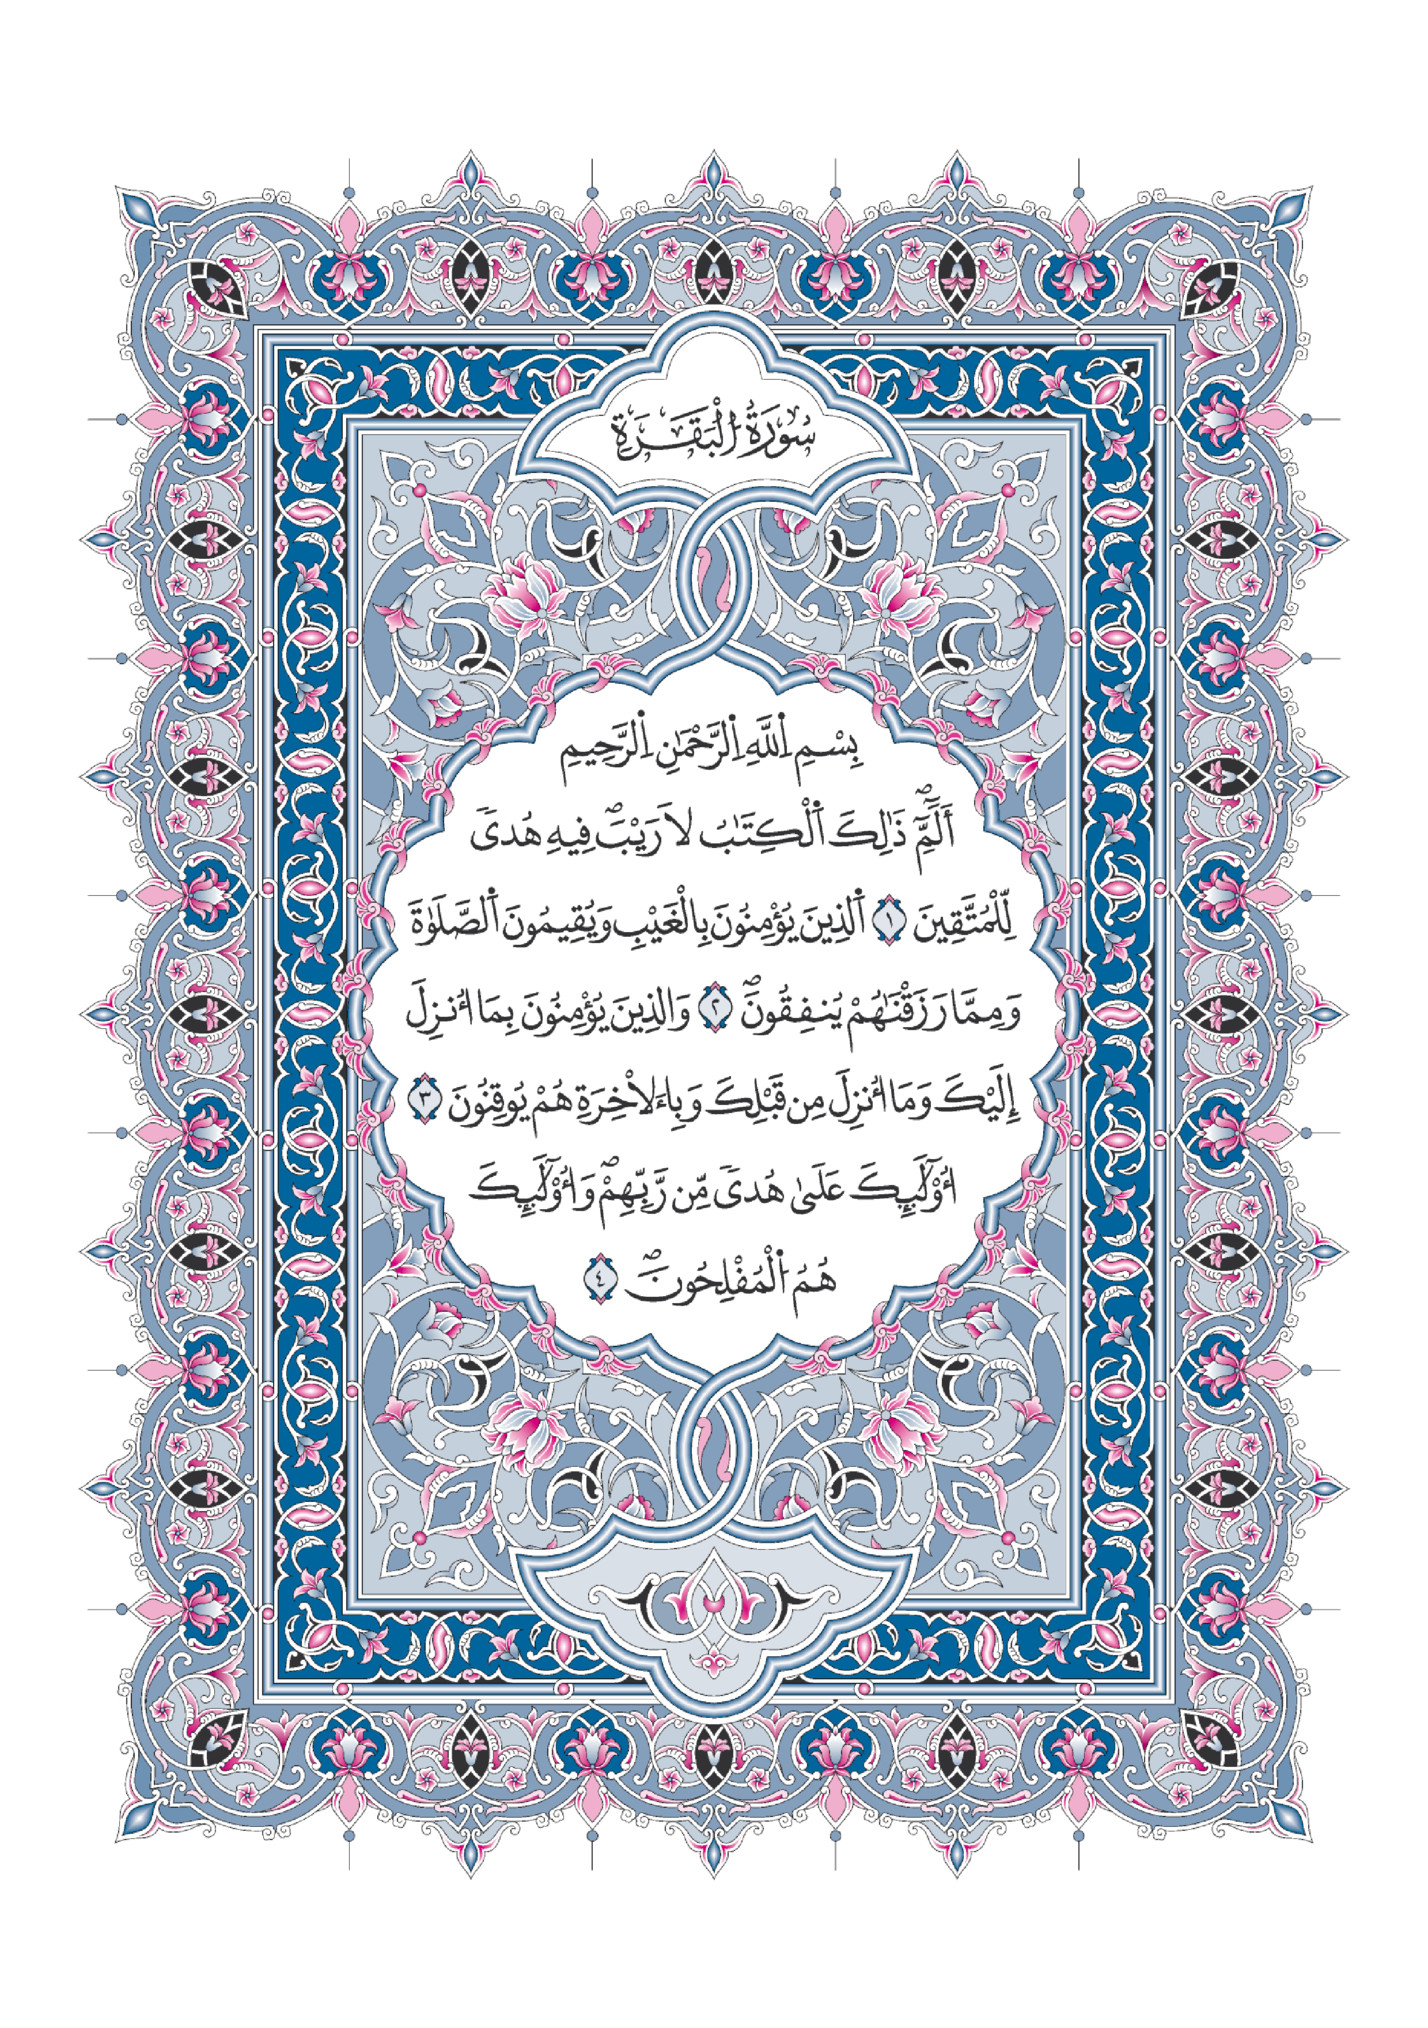 سُورَةُ الْبَقَرَةِ
بِسْمِ اِللَّهِ اِلرَّحْمَٰنِ اِلرَّحِيمِ
أَلَٓمِّٓۖ ذَٰلِكَ اَ۬لْكِتَٰبُ لَا رَيْبَۖ فِيهِ هُدىٗ
لِّلْمُتَّقِينَ ١ اَ۬لذِينَ يُؤْمِنُونَ بِالْغَيْبِ وَيُقِيمُونَ اَ۬لصَّلَوٰةَ
وَمِمَّا رَزَقْنَٰهُمْ يُنفِقُونَۖ ٢ وَالذِينَ يُؤْمِنُونَ بِمَا أُنزِلَ
إِلَيْكَ وَمَا أُنزِلَ مِن قَبْلِكَ وَبِالَاخِرَةِ هُمْ يُوقِنُونَ ٣
أُوْلَٰٓئِكَ عَلَىٰ هُدىٗ مِّن رَّبِّهِمْۖ وَأُوْلَٰٓئِكَ
هُمُ اُ۬لْمُفْلِحُونَۖ ٤